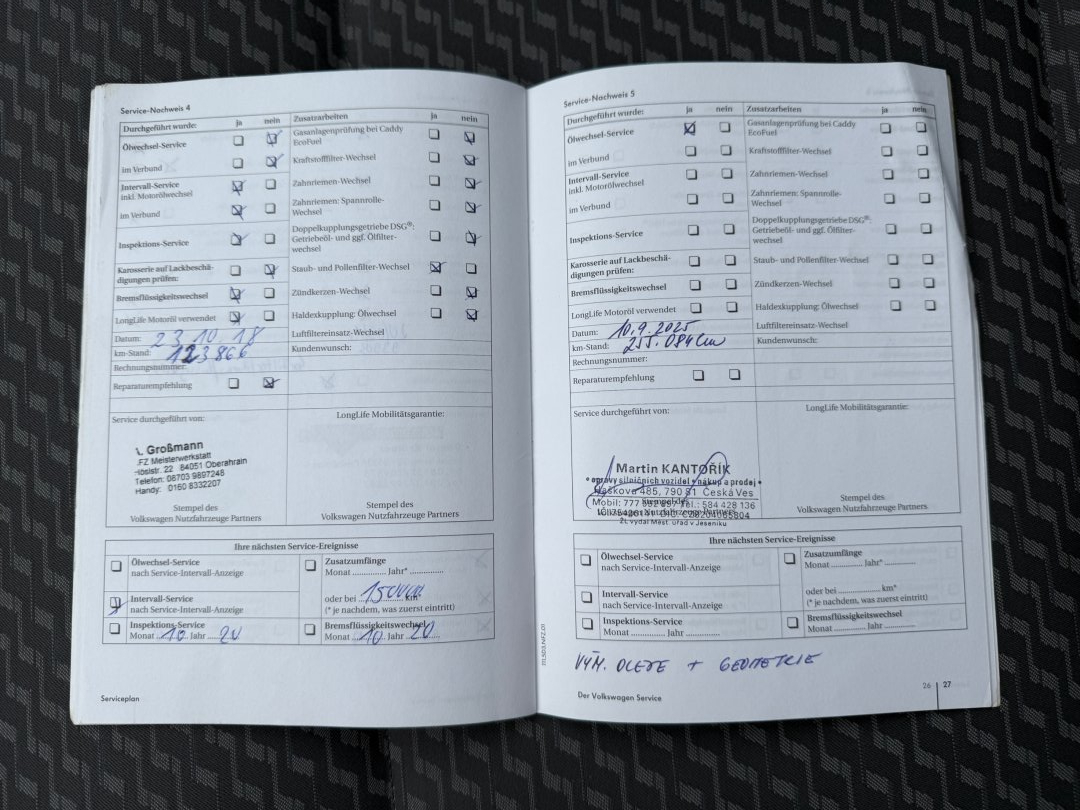 Service-Nachweis 4
Durchgeführt wurde: ja nein Zusatzarbeiten ja nein
Ölwechsel-Service
Gasanlagenprüfung bei Caddy
EcoFuel
im Verbund
Kraftstofffilter-Wechsel
Intervall-Service
inkl. Motorölwechsel
Zahnriemen-Wechsel
im Verbund
Zahnriemen: Spannrolle-
Wechsel
Inspektions-Service
Doppelkupplungsgetriebe DSG®:
Getriebeöl- und ggf. Ölfilter-
wechsel
Karosserie auf Lackbeschä-
digungen prüfen:
Staub- und Pollenfilter-Wechsel
Bremsflüssigkeitswechsel
Zündkerzen-Wechsel
LongLife Motoröl verwendet
Haldexkupplung: Ölwechsel
Datum: 23 10 18
Luftfiltereinsatz-Wechsel
km-Stand: 123866
Kundenwunsch:
Rechnungsnummer:
Reparaturempfehlung
Service durchgeführt von:
LongLife Mobilitätsgarantie:
Großmann
FZ Meisterwerkstatt
22 84051 Oberahrain
Telefon: 08703 9897248
Handy: 0160 8332207
Stempel des
Volkswagen Nutzfahrzeuge Partners
Stempel des
Volkswagen Nutzfahrzeuge Partners
Ihre nächsten Service-Ereignisse
Ölwechsel-Service
nach Service-Intervall-Anzeige
Zusatzumfänge
Monat ............ Jahr* ............
Intervall-Service
nach Service-Intervall-Anzeige
oder bei 150000 km*
(* je nachdem, was zuerst eintritt)
Inspektions-Service
Monat 10 Jahr 20
Bremsflüssigkeitswechsel
Monat 10 Jahr 20
Serviceplan
111.5D3.NFZ.01
Service-Nachweis 5
ja nein Zusatzarbeiten ja nein
Durchgeführt wurde:
Ölwechsel-Service
Gasanlagenprüfung bei Caddy
EcoFuel
im Verbund
Kraftstofffilter-Wechsel
Intervall-Service
inkl. Motorölwechsel
Zahnriemen-Wechsel
im Verbund
Zahnriemen: Spannrolle-
Wechsel
Inspektions-Service
Doppelkupplungsgetriebe DSG®:
Getriebeöl- und ggf. Ölfilter-
wechsel
Karosserie auf Lackbeschä-
digungen prüfen:
Staub- und Pollenfilter-Wechsel
Bremsflüssigkeitswechsel
Zündkerzen-Wechsel
LongLife Motoröl verwendet
Haldexkupplung: Ölwechsel
Datum: 10.9.2025
Luftfiltereinsatz-Wechsel
km-Stand: 255.084 km
Kundenwunsch:
Rechnungsnummer:
Reparaturempfehlung
Service durchgeführt von:
LongLife Mobilitätsgarantie:
Martin KANTOŘÍK
• opravy silničních vozidel • nákup a prodej •
Haškova 485, 790 81 Česká Ves
Mobil: 777 Tel.: 584 428 136
ŽL vydal Měst. úřad v Jeseníku
Stempel des
Volkswagen Nutzfahrzeuge Partners
Stempel des
Volkswagen Nutzfahrzeuge Partners
Ihre nächsten Service-Ereignisse
Ölwechsel-Service
nach Service-Intervall-Anzeige
Zusatzumfänge
Monat ............ Jahr* ............
Intervall-Service
nach Service-Intervall-Anzeige
oder bei ............ km*
(* je nachdem, was zuerst eintritt)
Inspektions-Service
Monat ............ Jahr ............
Bremsflüssigkeitswechsel
Monat ............ Jahr ............
VÝM. OLEJE + GEOMETRIE
Der Volkswagen Service
26 27